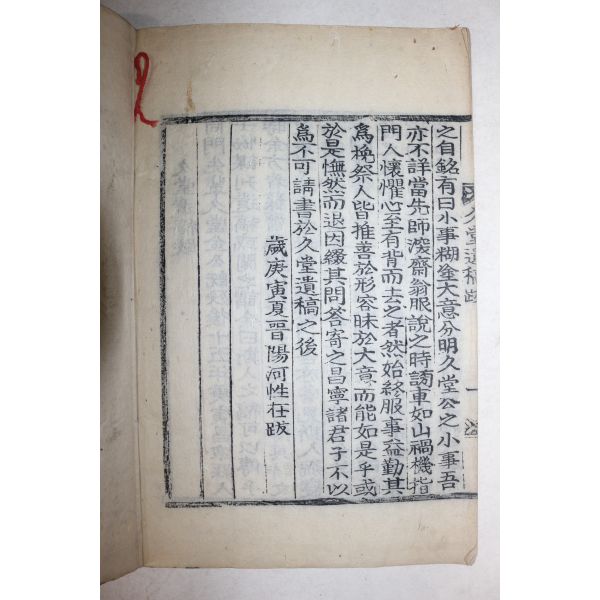 之自銘有曰小事糊塗大意分明久堂公之小事吾
亦不詳當先師深齋翁服說之時謗車如山禍機指
門人懷懼心至有背而去之者然始終服事益勤其
爲挽祭人皆推善於形容昧於大意而能如是乎或
於是憮然而退因綴其問答寄之昌寧諸君子不以
爲不可請書於久堂遺稿之後
歲庚寅夏晋陽河性在跋
久堂遺稿跋
一